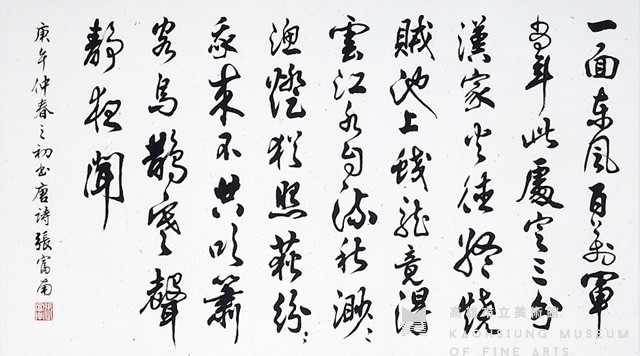 一面東風百萬軍
當年此處定三分
漢家火德終燒
賊池上蛟龍竟得
雲江水自流秋渺〻
漁燈猶照荻紛〻
我來不共吹簫
客烏鵲寒聲
靜夜聞
庚午仲春之初書唐詩張富南
高雄市立美術館
KAOHSIUNG MUSEUM
OF FINE ARTS